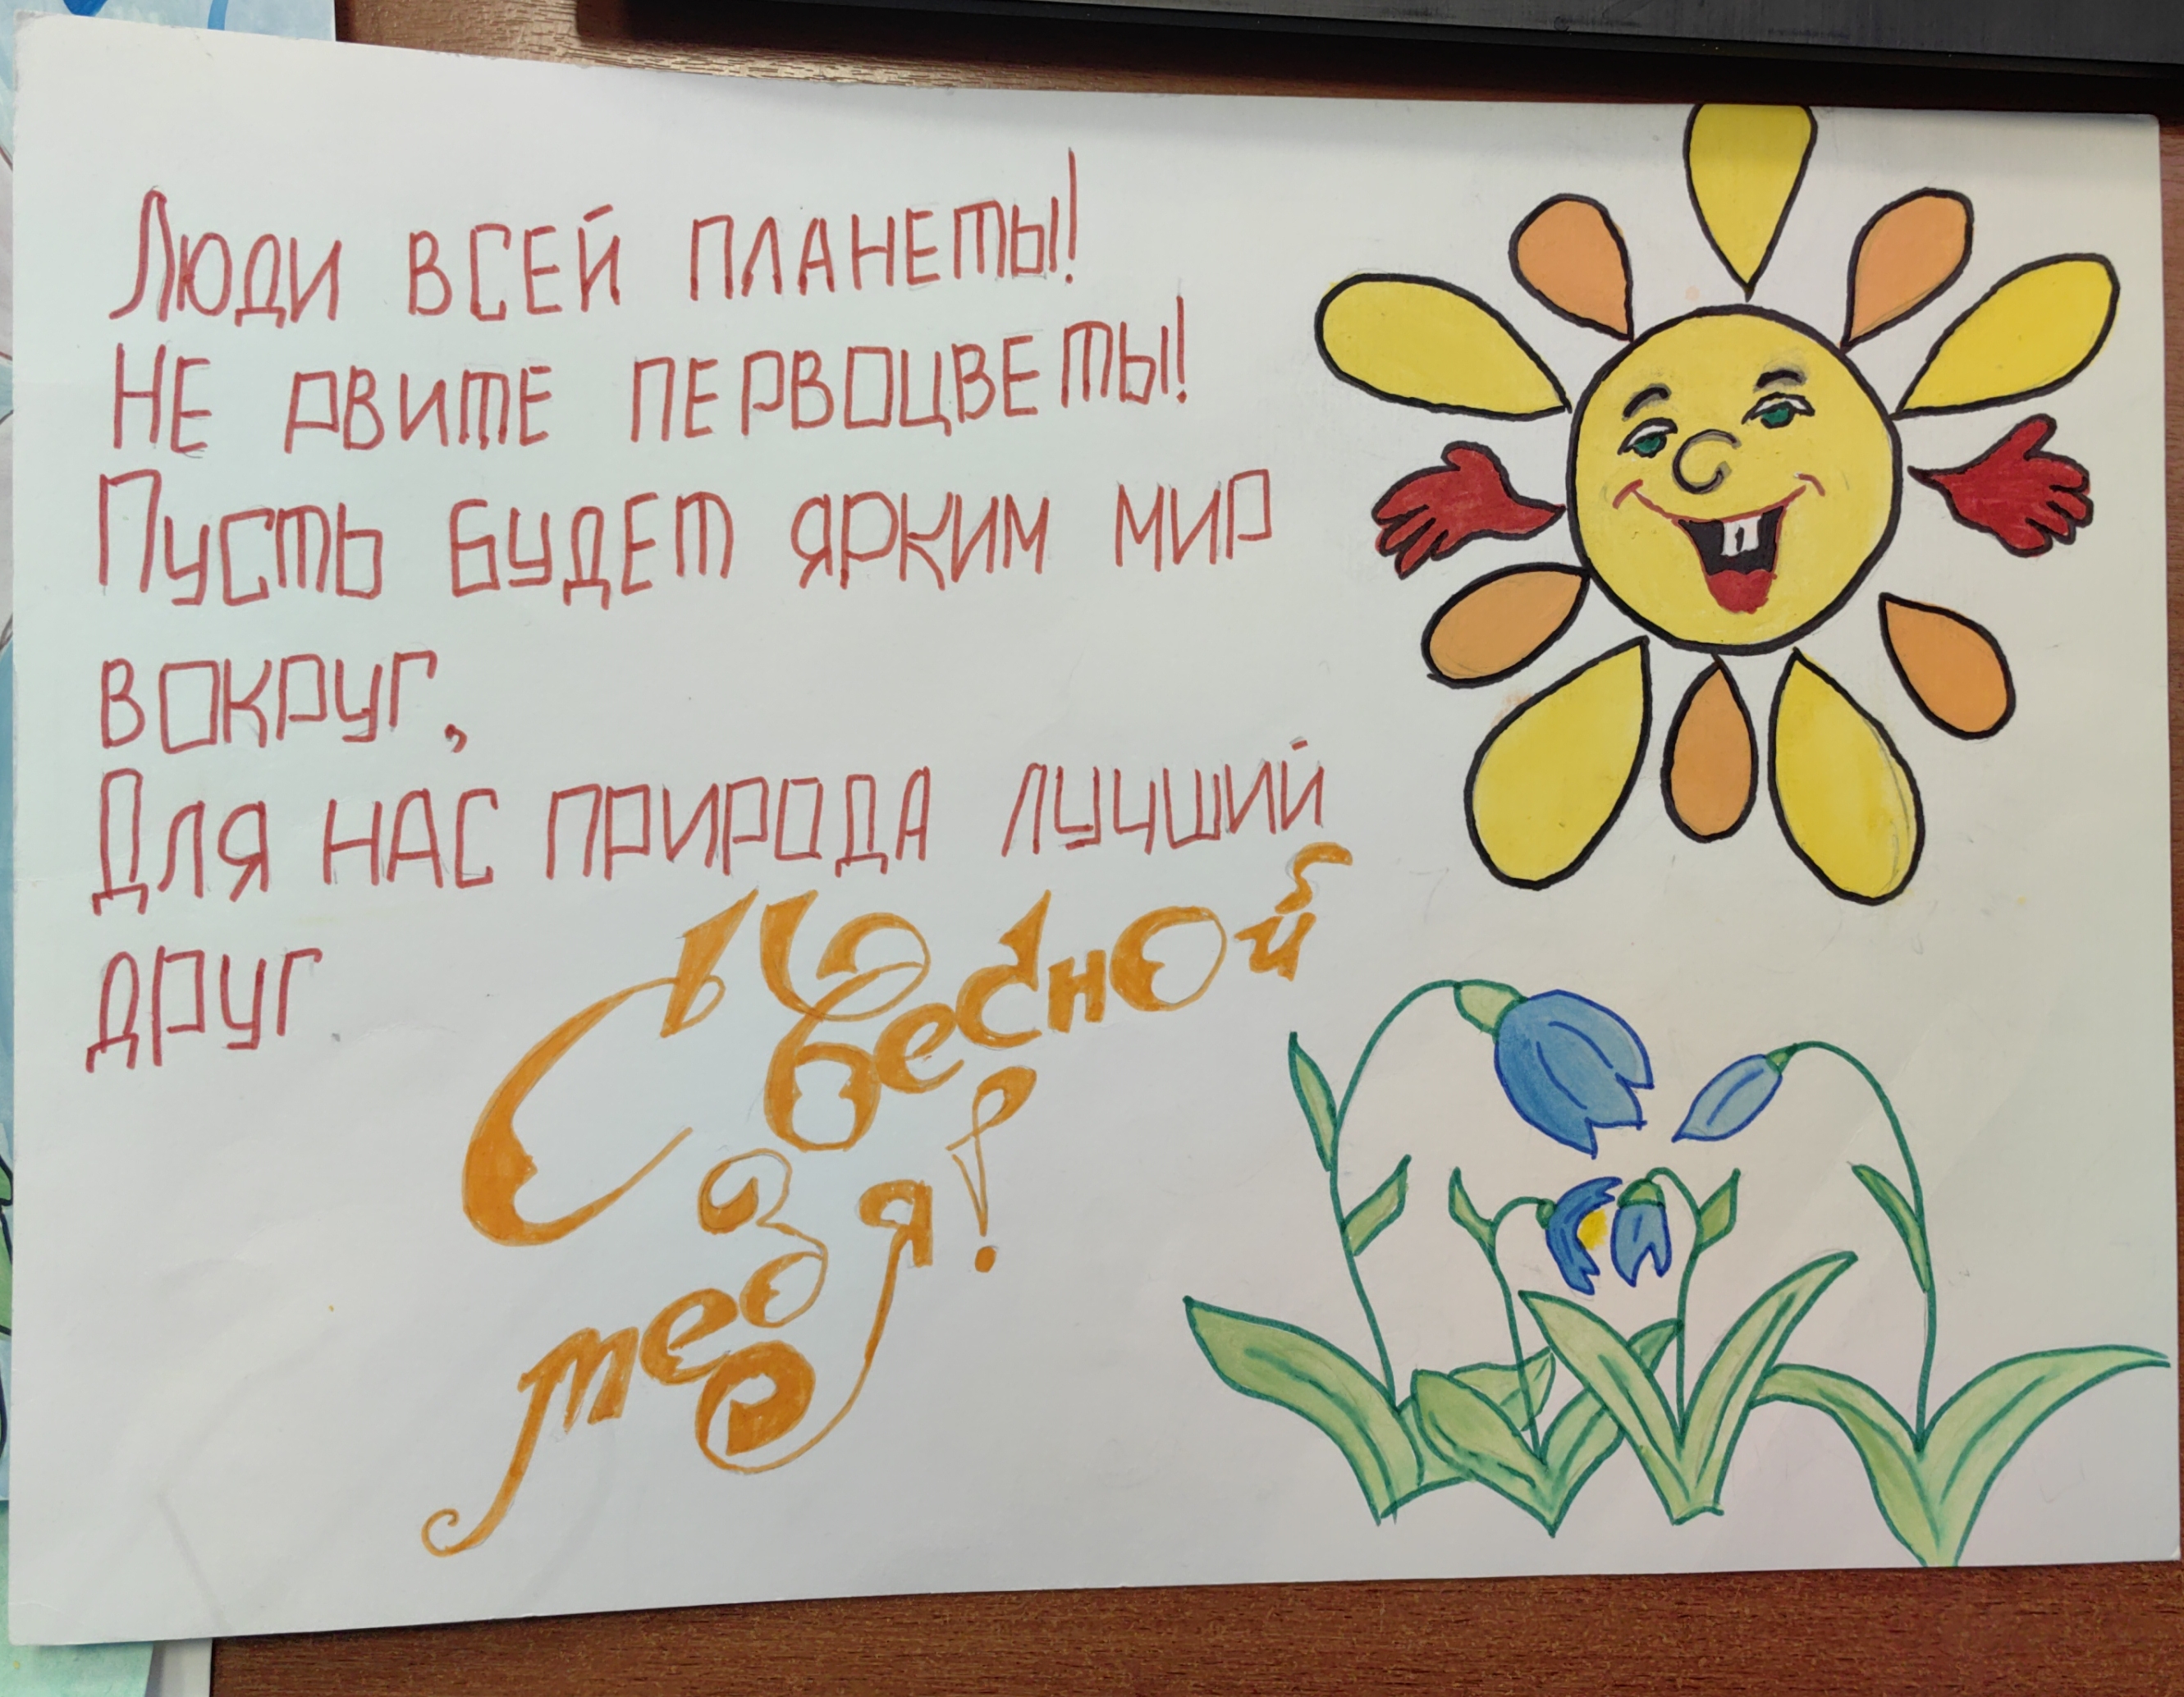 Люди всей планеты!
Не рвите первоцветы!
Пусть будет ярким мир
вокруг,
Для нас природа лучший
друг
С весной
тебя!